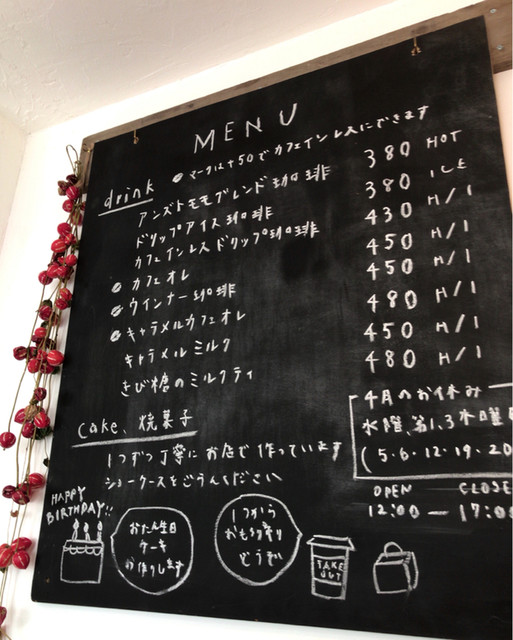 MENU
マークは+50でカフェインレスにできます
drink
アンズトモモブレンド珈琲 380 HOT
ドリップアイス珈琲 380 ICE
カフェインレスドリップ珈琲 430 H/I
カフェオレ 450 H/I
ウインナー珈琲 450 H/I
キャラメルカフェオレ 480 H/I
キャラメルミルク 450 H/I
きび糖のミルクティ 480 H/I
cake、焼菓子
1つずつ丁寧にお店で作っています
ショーケースをごらんください
4月のお休み
水曜、第1.3木曜日
(5.6.12.19.20
OPEN CLOSE
12:00 — 17:00
HAPPY
BIRTHDAY!!
おたん生日
ケーキ
お作りします
1つから
おもち帰り
どうぞ
TAKE
OUT